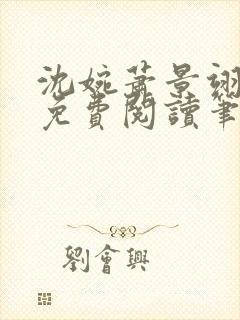 沈婉蕭景翊
免費閱讀筆
劉會興